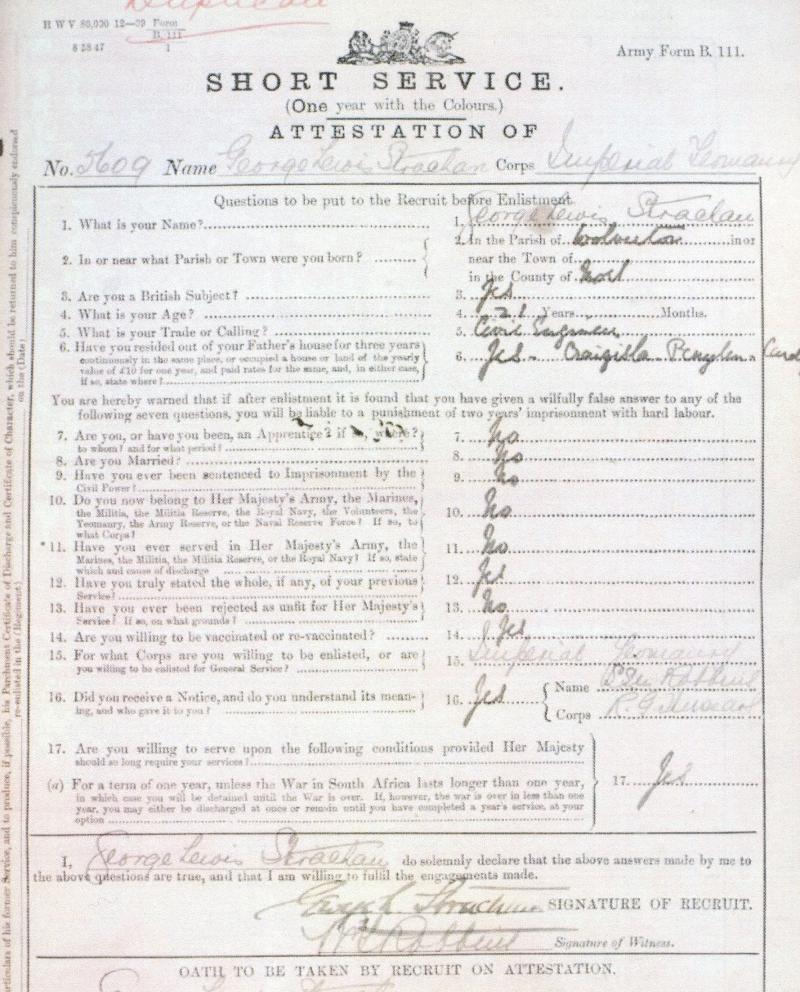 Duplicate
H W V 80,000 12—99 Form
B. 111
8 5847 1
Army Form B. 111.
SHORT SERVICE.
(One year with the Colours.)
ATTESTATION OF
No. 5609 Name George Lewis Strachan Corps Imperial Yeomanry
Questions to be put to the Recruit before Enlistment.
1. What is your Name? 1. George Lewis Strachan
2. In or near what Parish or Town were you born? 2. In the Parish of Wolverton in or
near the Town of
in the County of
3. Are you a British Subject? 3. Yes
4. What is your Age? 4. 21 Years Months.
5. What is your Trade or Calling? 5. Civil Engineer
6. Have you resided out of your Father's house for three years
continuously in the same place, or occupied a house or land of the yearly
value of £10 for one year, and paid rates for the same, and, in either case,
if so, state where? 6. Yes - Penylan - Card
You are hereby warned that if after enlistment it is found that you have given a wilfully false answer to any of the
following seven questions, you will be liable to a punishment of two years' imprisonment with hard labour.
7. Are you, or have you been, an Apprentice? if so, where? 7. No
to whom? and for what period?
8. Are you Married? 8. No
9. Have you ever been sentenced to Imprisonment by the
Civil Power? 9. No
10. Do you now belong to Her Majesty's Army, the Marines,
the Militia, the Militia Reserve, the Royal Navy, the Volunteers, the
Yeomanry, the Army Reserve, or the Naval Reserve Force? If so, to
what Corps? 10. No
* 11. Have you ever served in Her Majesty's Army, the
Marines, the Militia, the Militia Reserve, or the Royal Navy? If so, state
which and cause of discharge 11. No
12. Have you truly stated the whole, if any, of your previous
Service? 12. Yes
13. Have you ever been rejected as unfit for Her Majesty's
Service? If so, on what grounds? 13. No
14. Are you willing to be vaccinated or re-vaccinated? 14. Yes
15. For what Corps are you willing to be enlisted, or are
you willing to be enlisted for General Service? 15. Imperial Yeomanry
16. Did you receive a Notice, and do you understand its mean-
ing, and who gave it to you? 16. Yes Name Robbins
Corps
17. Are you willing to serve upon the following conditions provided Her Majesty
should so long require your services?
(a) For a term of one year, unless the War in South Africa lasts longer than one year,
in which case you will be detained until the War is over. If, however, the war is over in less than one
year, you may either be discharged at once or remain until you have completed a year's service, at your
option 17. Yes
I, George Lewis Strachan do solemnly declare that the above answers made by me to
the above questions are true, and that I am willing to fulfil the engagements made.
Strachan SIGNATURE OF RECRUIT.
Robbins Signature of Witness.
OATH TO BE TAKEN BY RECRUIT ON ATTESTATION.
articulars of his former Service, and to produce, if possible, his Parchment Certificate of Discharge and Certificate of Character, which should be returned to him conspicuously endorsed
re-enlisted in the (Regiment) on the (Date)